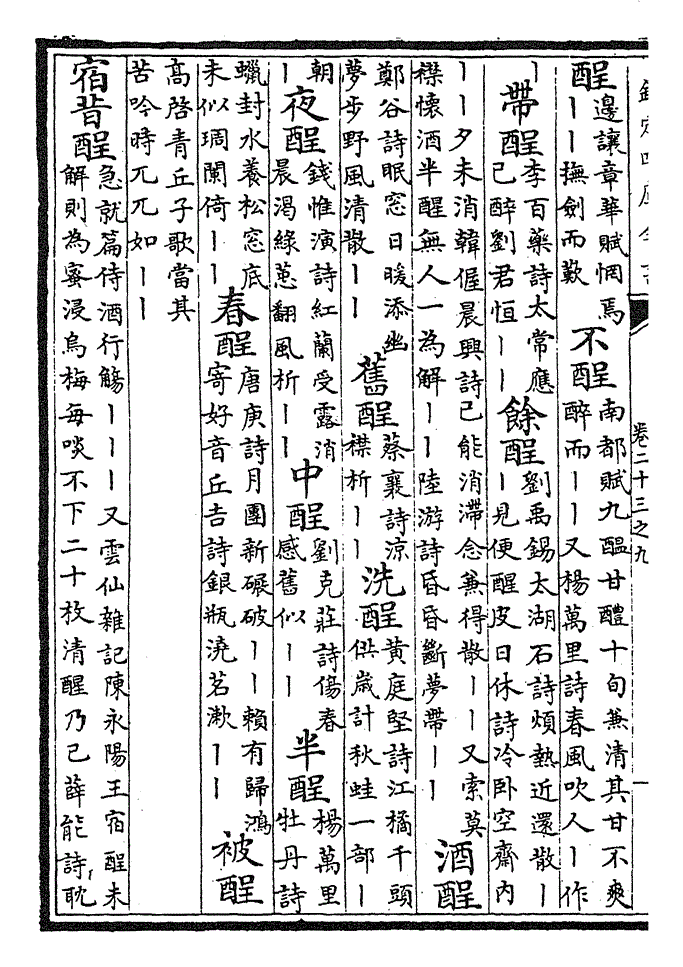 欽定四庫全書
卷二十三之九
酲邊讓章華賦惘焉
丨丨撫劍而歎
不酲南都賦九醖甘醴十旬兼清其甘不爽
醉而丨丨又楊萬里詩春風吹人丨作
丨
帶酲李百藥詩太常應
已醉劉君恒丨丨
餘酲劉禹錫太湖石詩煩熱近還散丨
丨見便醒皮日休詩冷卧空齋内
丨丨夕未消韓偓晨興詩已能消滯念兼得散丨丨又索莫
襟懷酒半醒無人一為解丨丨陸游詩昏昏斷夢帶丨丨
酒酲
鄭谷詩眠窓日暖添幽
夢步野風清散丨丨
舊酲蔡襄詩涼
襟析丨丨
洗酲黄庭堅詩江橘千頭
供歲計秋蛙一部丨
朝
丨
夜酲錢惟演詩紅蘭受露消
晨渴緑蔥翻風析丨丨
中酲劉克莊詩傷春
感舊似丨丨
半酲楊萬里
牡丹詩
蠟封水養松窓底
未似琱闌倚丨丨
春酲唐庚詩月團新碾破丨丨賴有歸鴻
寄好音丘吉詩銀瓶澆茗漱丨丨
被酲
高啓青丘子歌當其
苦吟時兀兀如丨丨
宿昔酲急就篇侍酒行觴丨丨丨又雲仙雜記陳永陽王宿酲未
解則為蜜浸烏梅每啖不下二十枚清醒乃已薛能詩耽